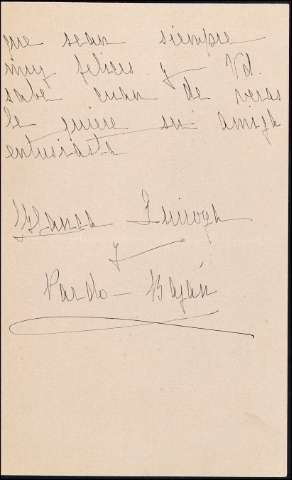 que sean siempre
muy felices y Vd.
sabe cuan de veras
le quiere su amiga
entusiasta
Blanca Quiroga
y
Pardo-Bazán